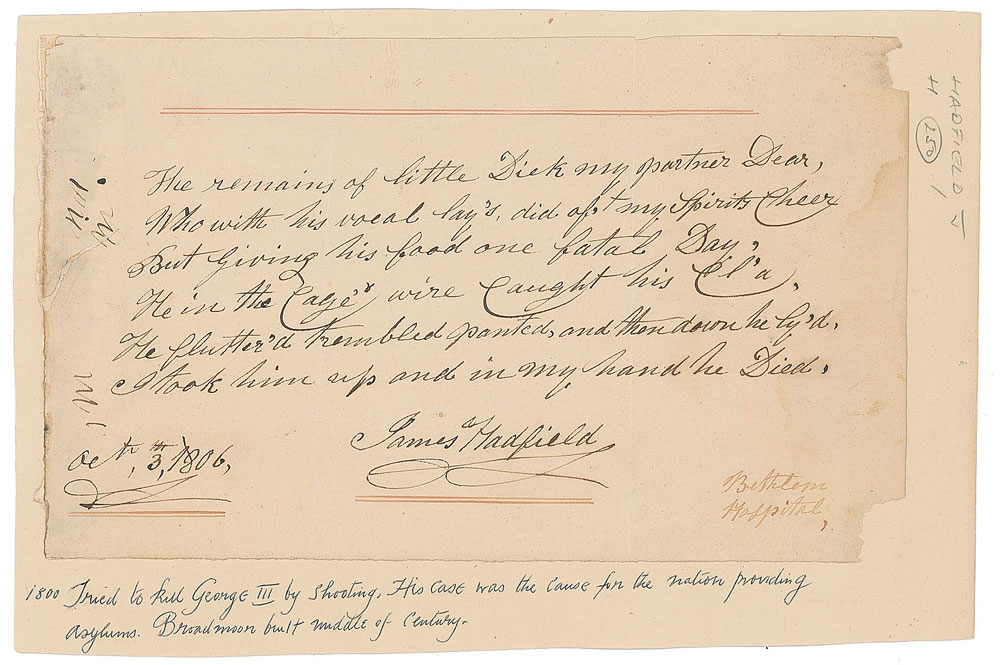 The remains of little Dick my partner Dear,
Who with his vocal lay's, did oft my spirits Cheer
But Giving his food one fatal Day,
He in the Cage's wire Caught his Cl'a,
He flutter'd trembled panted, and then down he ly'd,
I took him up and in my hand he Died.
James Hadfield
Octr, 3th, 1806,
Bethlem
Hospital,
1800 Tried to kill George III by shooting. His case was the cause for the nation providing
asylums. Broadmoor built middle of Century.
HADFIELD J
H 250